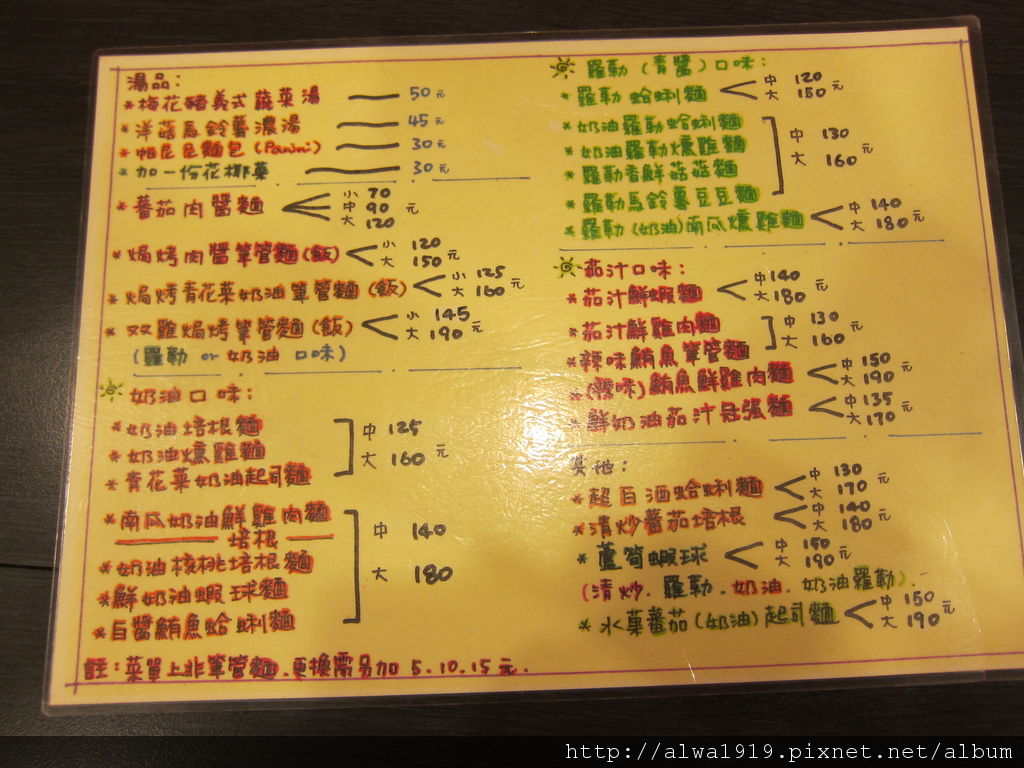 湯品:
*梅花豬義式蔬菜湯 50元
*洋菇馬鈴薯濃湯 45元
*帕尼尼麵包(Panini) 30元
*加一份花椰菜 30元
*蕃茄肉醬麵 小70 中90 大120 元
*焗烤肉醬筆管麵(飯) 小120 大150 元
*焗烤青花菜奶油筆管麵(飯) 小125 大160 元
*双雞焗烤筆管麵(飯) 小145 大190 元
(羅勒 or 奶油 口味)
奶油口味:
*奶油培根麵
*奶油燻雞麵
*青花菜奶油起司麵
中125 大160 元
*南瓜奶油鮮雞肉麵
培根
*奶油核桃培根麵
*鮮奶油蝦球麵
*白醬鮪魚蛤蜊麵
中 140
大 180
註:菜單上非筆管麵.更換需另加 5.10.15元.
羅勒(青醬)口味:
*羅勒蛤蜊麵 中120 大150 元
*奶油羅勒蛤蜊麵
*奶油羅勒燻雞麵
*羅勒香鮮菇菇麵
*羅勒馬鈴薯豆豆麵
中130 大160 元
*羅勒(奶油)南瓜燻雞麵 中140 大180 元
茄汁口味:
*茄汁鮮蝦麵 中140 大180 元
*茄汁鮮雞肉麵
*辣味鮪魚筆管麵
中130 大160 元
*(辣味)鮪魚鮮雞肉麵 中150 大190 元
*鮮奶油茄汁元強麵 中135 大170 元
其他:
*超白酒蛤蜊麵 中130 大170 元
*清炒蕃茄培根 中140 大180 元
*蘆筍蝦球 中150 大190 元
(清炒.羅勒.奶油.奶油羅勒).
*水菓蕃茄(奶油)起司麵 中150 大190 元
http://alwa1919.pixnet.net/album